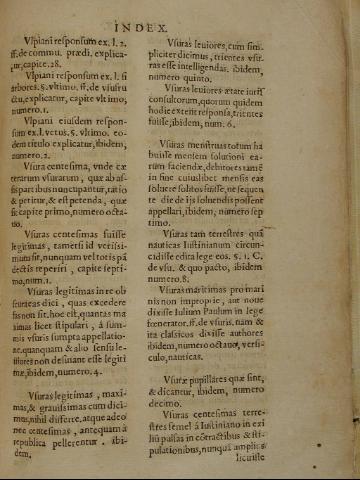 INDEX.
Vlpiani responsum ex. l. 2.
ff. de commu. prædi. explica-
tur, capite. 28.
Vlpiani responsum ex. l. si
arbores. §. vltimo. ff. de vsufru
ctu, explicatur, capite vltimo,
numero. 1.
Vlpiani eiusdem respon-
sum ex l. vetus. §. vltimo. eo-
dem titulo explicatur, ibidem,
numero. 2.
Vsura centesima, vnde cæ
terarum vsurarum, quæ ab as-
sis partibus nuncupantur, ratio
& petitur, & est petenda, quæ
sit capite primo, numero octa-
uo.
Vsuras centesimas fuisse
legitimas, tametsi id verissi-
mum sit, nunquam vel to tis pã
dectis reperiri, capite septi-
mo, num. 1.
Vsuras legitimas in re ob
scura eas dici, quas excedere
fas non sit. hoc est, quantas ma
ximas licet stipulari, á sum-
mis vsuris sumpta appellatio-
ne. quanquam & alio sensu le-
uiores non desinant esse legiti
mæ, ibidem, numero. 4.
Vsuras legitimas, maxi-
mas, & grauissimas cum dici-
mus, nihil differre. atque adeo
nec centesimas, antequam à
republica pellerentur. ibi-
dem,
Vsuras leuiores, cum sim-
pliciter dicimus, trientes vsu-
ras esse intelligendas. ibidem,
numero quinto.
Vsuras leuiores ætate iuris
consultorum, quorum quidem
hodie extent responsa, trientes
fuisse, ibidem, num. 6.
Vsuras menstruas totum ha
buisse mentem solutioni ea-
rum faciendæ, debitores tamẽ
in fine cuiuslibet mensis eas
soluere solitos fuisse, ne sequen
te die de ijs soluendis possent
appellari, ibidem, numero sep
timo.
Vsuras tam terrestres quà
nauticas Iustinianum circun-
cidisse edita lege eos. §. 1. C.
de vsu. & quo pacto, ibidem
numero. 8.
Vsuras maritimas pro mari
nis non improprie, aut noue
dixisse Iulium Paulum in lege
fœnerator. ff. de vsuris. nam &
ita classicos dixisse authores
ibidem, numero octauo, versi-
culo, nauticas.
Vsuræ pupillares quæ sint,
& dicantur, ibidem, numero
decimo.
Vsuras centesimas terre-
stres semel á Iustiniano in exi
liũ pulsas in cõtractibus & sti-
pulationibus, nunquã amplius
licuisse